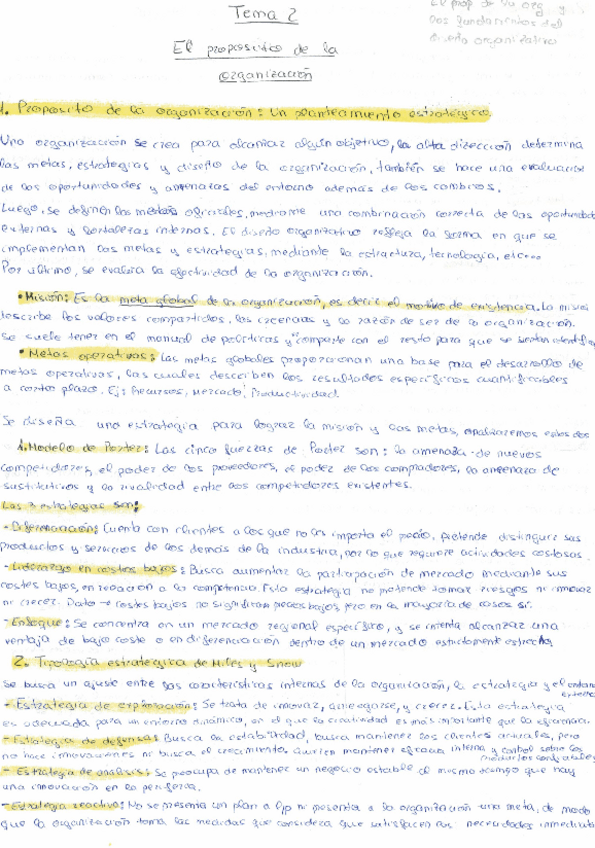 Tema 2
El prop de la org y
los fundamentos del
diseño organizativo
El proposito de la
organización
1. Proposito de la organización: Un planteamiento estratégico.
Una organización se crea para alcanzar algún objetivo, la alta dirección determina
las metas, estrategias y diseño de la organización, también se hace una evaluación
de las oportunidades y amenazas del entorno además de los cambios.
Luego, se definen las metas oficiales, mediante una combinación correcta de las oportunidades
externas y fortalezas internas. El diseño organizativo refleja la forma en que se
implementan las metas y estrategias, mediante la estructura, tecnología, etc...
Por ultimo, se evalúa la efectividad de la organización.
• Misión: Es la meta global de la organización, es decir el motivo de existencia. La misión
describe los valores compartidos, las creencias y la razón de ser de la organización.
Se suele tener en el manual de políticas y comparte con el resto para que se sientan identific
• Metas operativas: Las metas globales proporcionan una base para el desarrollo de
metas operativas, las cuales describen los resultados específicos cuantificables
a corto plazo. Ej: Recursos, Mercado, Productividad.
Se diseña una estrategia para lograr la misión y las metas, analizaremos estos dos
1. Modelo de Porter: Las cinco fuerzas de Porter son: la amenaza de nuevos
competidores, el poder de los proveedores, el poder de los compradores, la amenaza de
sustitutivos y la rivalidad entre los competidores existentes.
Las 3 estrategias son:
- Diferenciación: Cuenta con clientes a los que no les importa el precio. Pretende distinguir sus
productos y servicios de los demás de la industria, por lo que requiere actividades costosas.
- Liderazgo en costos bajos: Busca aumentar la participación de mercado mediante sus
costes bajos, en relación a la competencia. Esta estrategia no pretende tomar riesgos ni innovar
ni crecer. Dato → costes bajos no significan precios bajos pero en la mayoría de casos sí.
- Enfoque: Se concentra en un mercado regional específico, y se intenta alcanzar una
ventaja de bajo coste o en diferenciación dentro de un mercado estrictamente estrecho
2. Tipología estratégica de Miles y Snow
Se busca un ajuste entre las características internas de la organización, la estrategia y el entorno
externo
- Estrategia de exploración: Se trata de innovar, arriesgarse, y crecer. Esta estrategia
es adecuada para un entorno dinámico, en el que la creatividad es más importante que la eficiencia.
- Estrategia de defensa: Busca la estabilidad, busca mantener los clientes actuales, pero
no hace innovaciones ni busca el crecimiento. Quieren mantener eficacia interna y control sobre los
productos confiables
- Estrategia de análisis: Se preocupa de mantener un negocio estable al mismo tiempo que hay
una innovación en la periferia.
- Estrategia reactiva: No se presenta un plan a lp ni presenta a la organización una meta, de modo
que la organización toma las medidas que considera que satisfacen las necesidades inmediatas